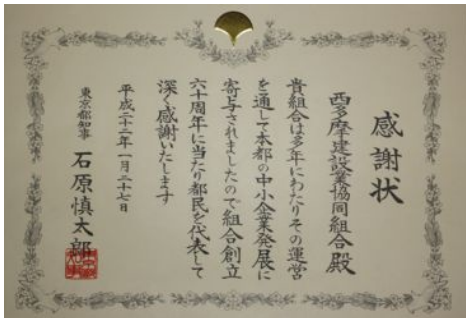 感謝状
西多摩建設業協同組合殿
貴組合は多年にわたりその運営
を通して本都の中小企業発展に
寄与されましたので組合創立
六十周年に当たり都民を代表して
深く感謝いたします
平成二十二年一月二十七日
東京都知事 石原慎太郎